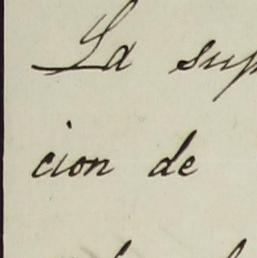 La sup
cion de